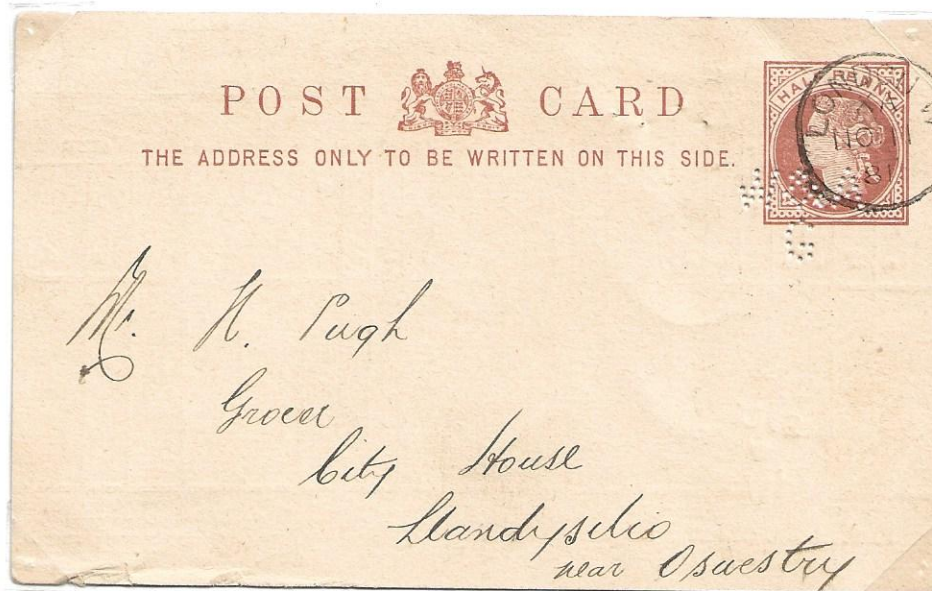 POST CARD
THE ADDRESS ONLY TO BE WRITTEN ON THIS SIDE.
HALFPENNY
LONDON
NO 11
81
Mr. H. Pugh
Grocer
City House
Llandysilio
near Oswestry